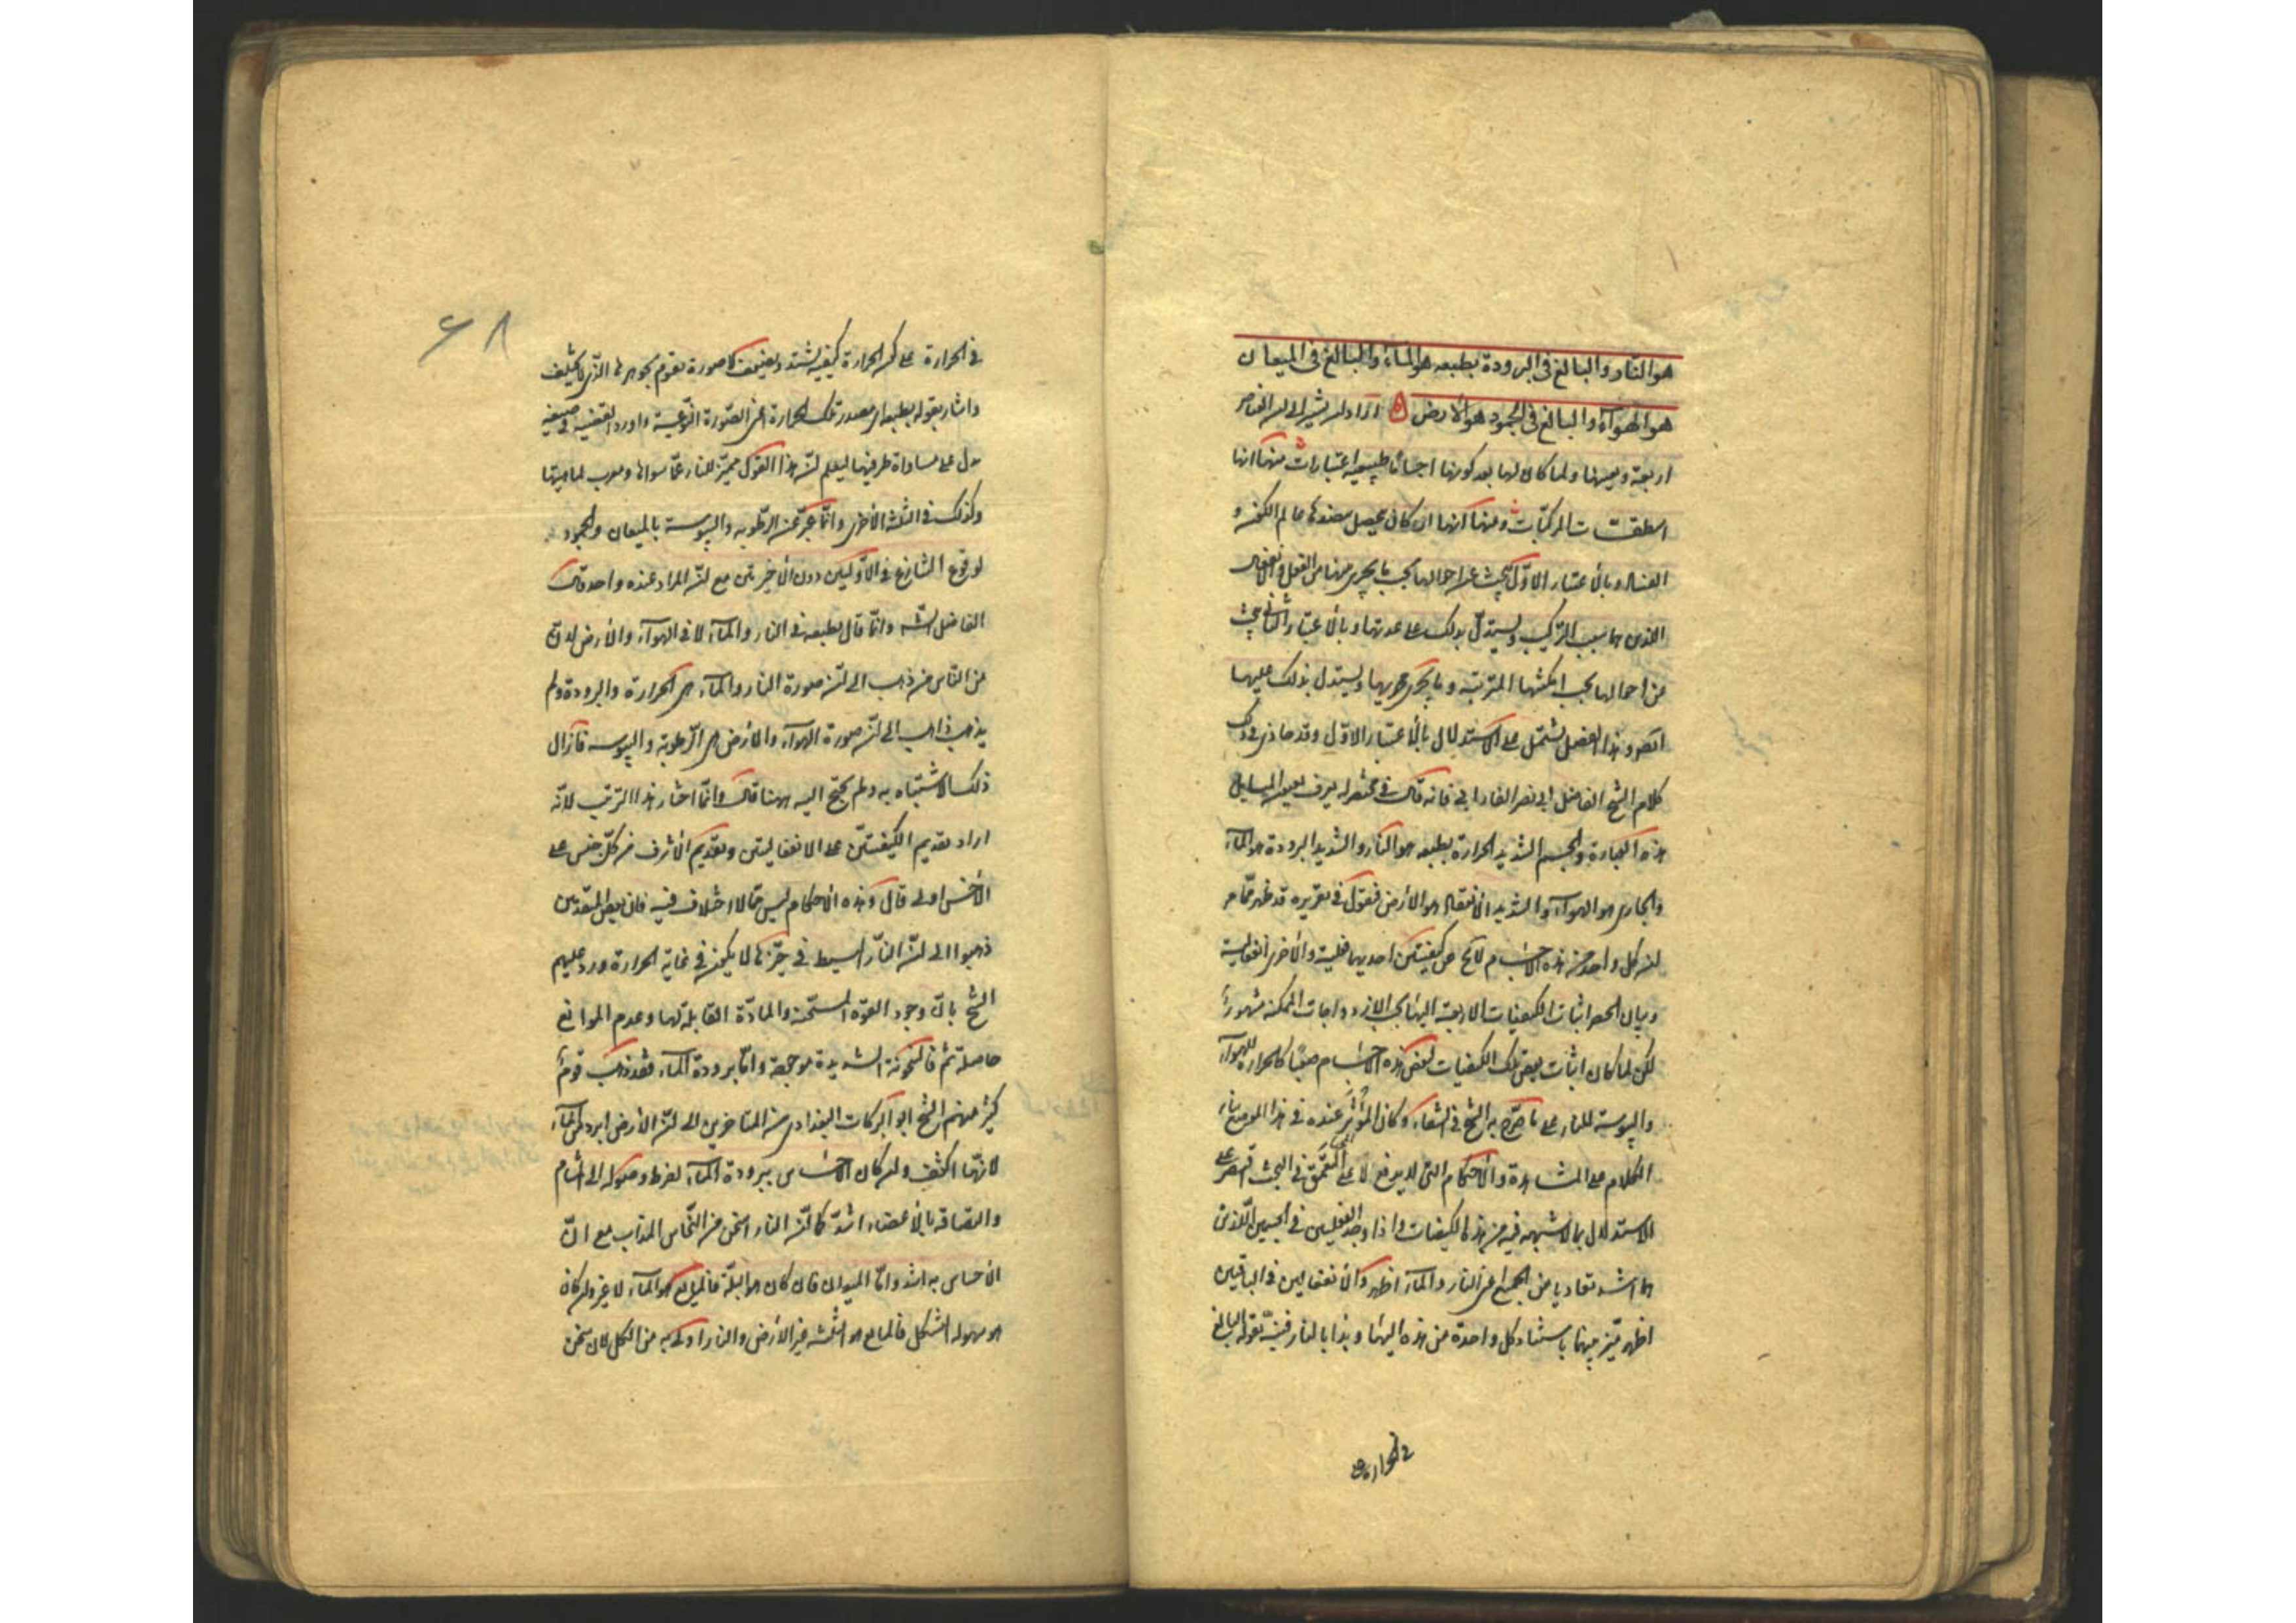 هو النار والبالغ فى البرودة بطبعه هو الماء والبالغ فى الميعان
هو الهواء والبالغ فى الجمود هو الارض اراد ان يشير الى ان العناصر
اربعة ويعينها ولما كان لها بعد كونها اجساما طبيعية اعتبارات منها انها
اسطقسات المركبات ومنها انها اركان يحصل بنضدها عالم الكون و
الفساد وبالاعتبار الاول يبحث عن احوالها بحسب ما يجرى بينها من الفعل والانفعال
اللذين هما سبب التركيب ويستدل بذلك على عدتها وبالاعتبار الثانى يبحث
عن احوالها بحسب امكنتها المترتبة وما يجرى مجريها ويستدل بذلك عليها
ايضا وهذا الفصل يشتمل على الاستدلال بالاعتبار الاول وقد حاذى فى ذلك
كلام الشيخ الفاضل ابى نصر الفارابى فانه قال فى مختصر له يعرف بعيون المسايل
هذه العبارة والجسم الشديد الحرارة بطبعه هو النار والشديد البرودة هو الماء
والجارى هو الهواء والشديد الانعقاد هو الارض فنقول فى تقريره قد ظهر مما مر
ان كل واحد من هذه الاجسام لا يخ عن كيفيتين احديهما فعلية والاخرى انفعالية
وبيان الحصر اثبات الكيفيات الاربعة اليها بحسب الازدواجات الممكنة مشهورا
لكن لما كان اثبات بعض تلك الكيفيات لبعض هذه الاجسام صعبا كالحرارة للهواء
واليبوسة للنار على ما صرح به الشيخ فى الشفاء وكان المؤثر عنده فى هذا الموضع بناء
الكلام على المشاهدة والاحكام التى لا يدفع لا على التعمق فى البحث اقتصر على
الاستدلال بما لا شبهة فيه من هذه الكيفيات واذا وجد الفعليين فى الجسمين اللذين
هما اشد تفاديا من الجميع اعنى النار والماء اظهر والانفعاليين فى الباقيين
اظهر ميز بينها باسناد كل واحدة من هذه اليها وبدا بالنار فنبه بقوله البالغ
فى الحرارة على
فى الحرارة على كون الحرارة كيفية يشتد ويضعف لا صورة تقوم بجوهرها الذى لا يختلف
واشار بقوله بطبعه الى مصدر تلك الحرارة اعنى الصورة النوعية واورد القضية فى صيغة
تدل على مساواة طرفيها ليعلم ان هذا القول مميز للنار عما سواها ومعرب لماهيتها
وكذلك فى الثلثة الاخرى وانما عبر عن الرطوبة واليبوسة بالميعان والجمود
لوقوع التنازع فى الاوليين دون الاخيرتين مع ان المراد عنده واحد قال
الفاضل الشه وانما قال بطبعه فى النار والماء لا فى الهواء والارض لان
من الناس من ذهب الى ان صورة النار والماء هى الحرارة والبرودة ولم
يذهب ذاهب الى ان صورة الهواء والارض هى الرطوبة واليبوسة فازال
ذلك الاشتباه به ولم يحتج اليه ههنا قال وانما اختار هذا الترتيب لانه
اراد تقديم الكيفيتين على الانفعاليتين وتقديم الاشرف من كل جنس على
الاخس اولى قال وهذه الاحكام ليس مما لا اختلاف فيه فان بعض المتقدمين
ذهبوا الى ان النار البسيط فى حيزها لا يكون فى غاية الحرارة ورد عليهم
الشيخ بان وجود القوة المسخنة والمادة القابلة لها وعدم الموانع
حاصلة ثم فالسخونة الشديدة موجودة واما برودة الماء فقد ذهب قوم
كثير منهم الشيخ ابو البركات البغدادى من المتاخرين الى ان الارض ابرد من الماء
لانها اكثف وان كان الاحساس ببرودة الماء لفرط وصوله الى المسام
والتصاقه بالاعضاء اشد كما ان النار اسخن من النحاس المذاب مع ان
الاحساس به اشد واما الميعان فان كان هو البلة فالمايع هو الماء لا غير وان كان
هو سهولة التشكل فالمايع هو الثلثة غير الارض والنار اولى به من الكل لان سخن